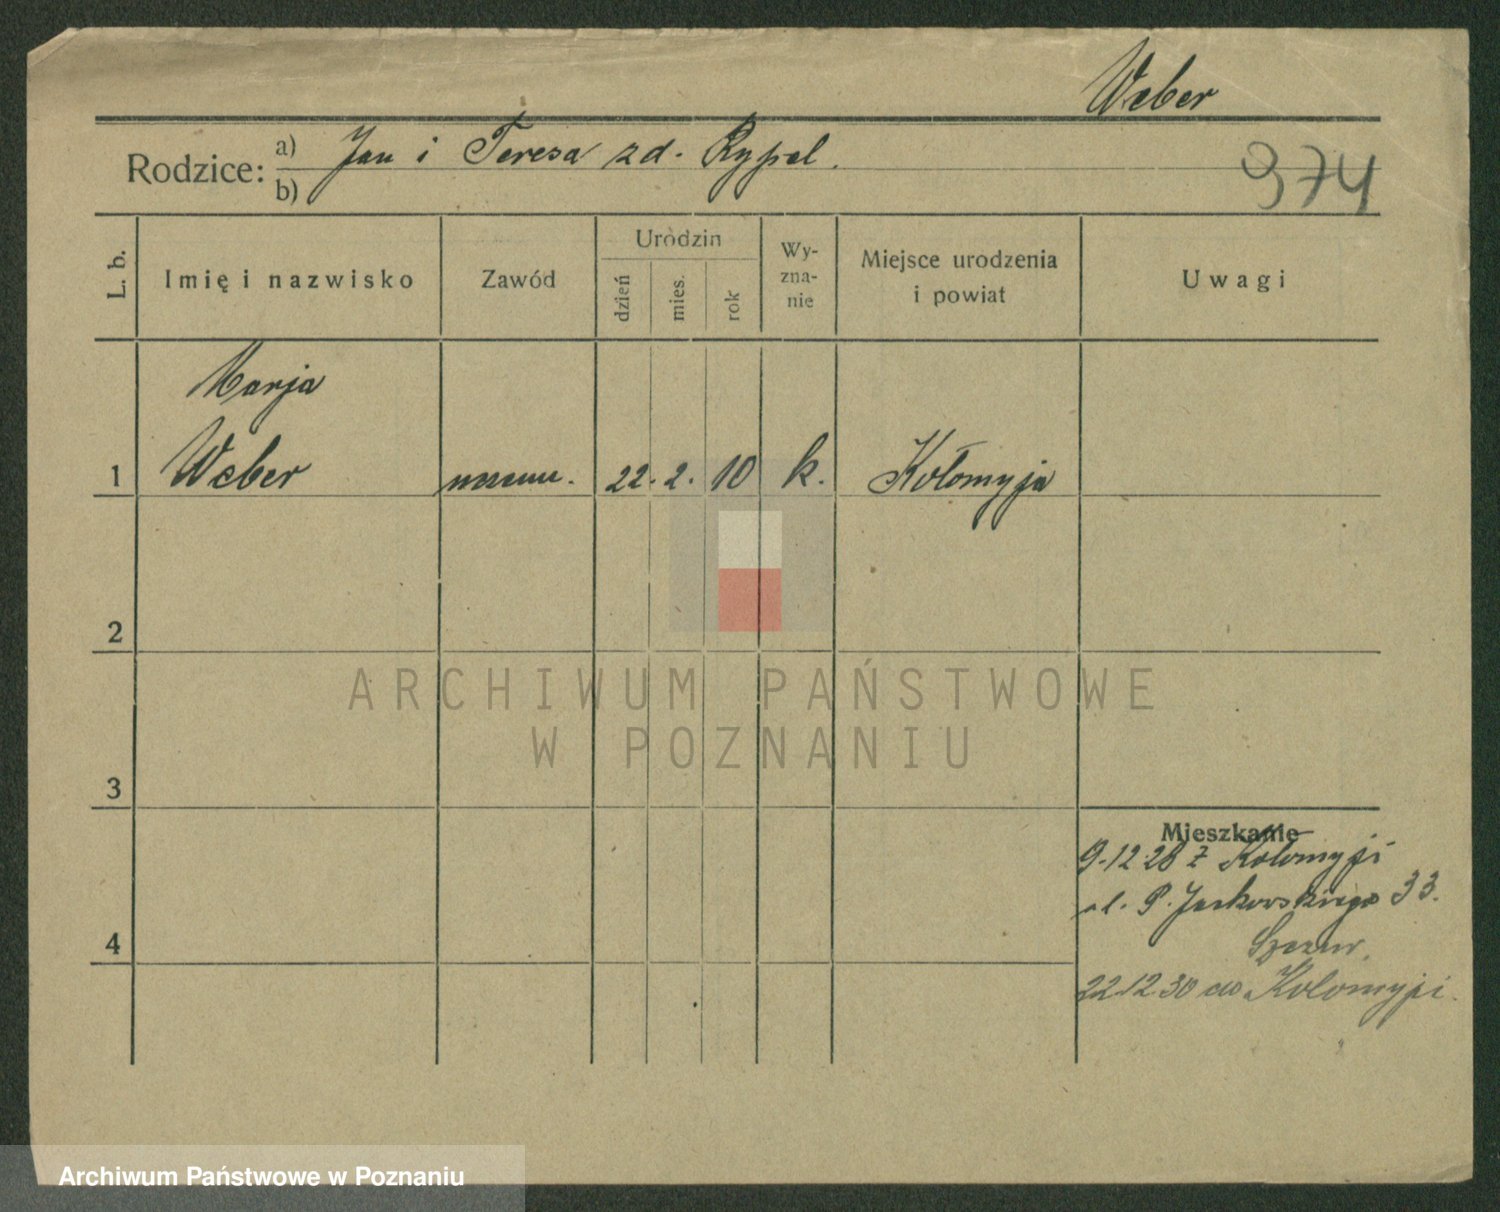 Weber
Rodzice: a) Jan i Teresa zd. Rypel.
b)
974
L. b. Imię i nazwisko Zawód Urodzin dzień mies. rok Wy-zna-nie Miejsce urodzenia i powiat Uwagi
Marja
1 Weber uczenn. 22. 2. 10 k. Kołomyja
2
ARCHIWUM PAŃSTWOWE
W POZNANIU
3
Mieszkanie
9.12.28 z Kołomyji
ul. P. Jackowskiego 33.
22.12.30 do Kołomyji.
4
Archiwum Państwowe w Poznaniu